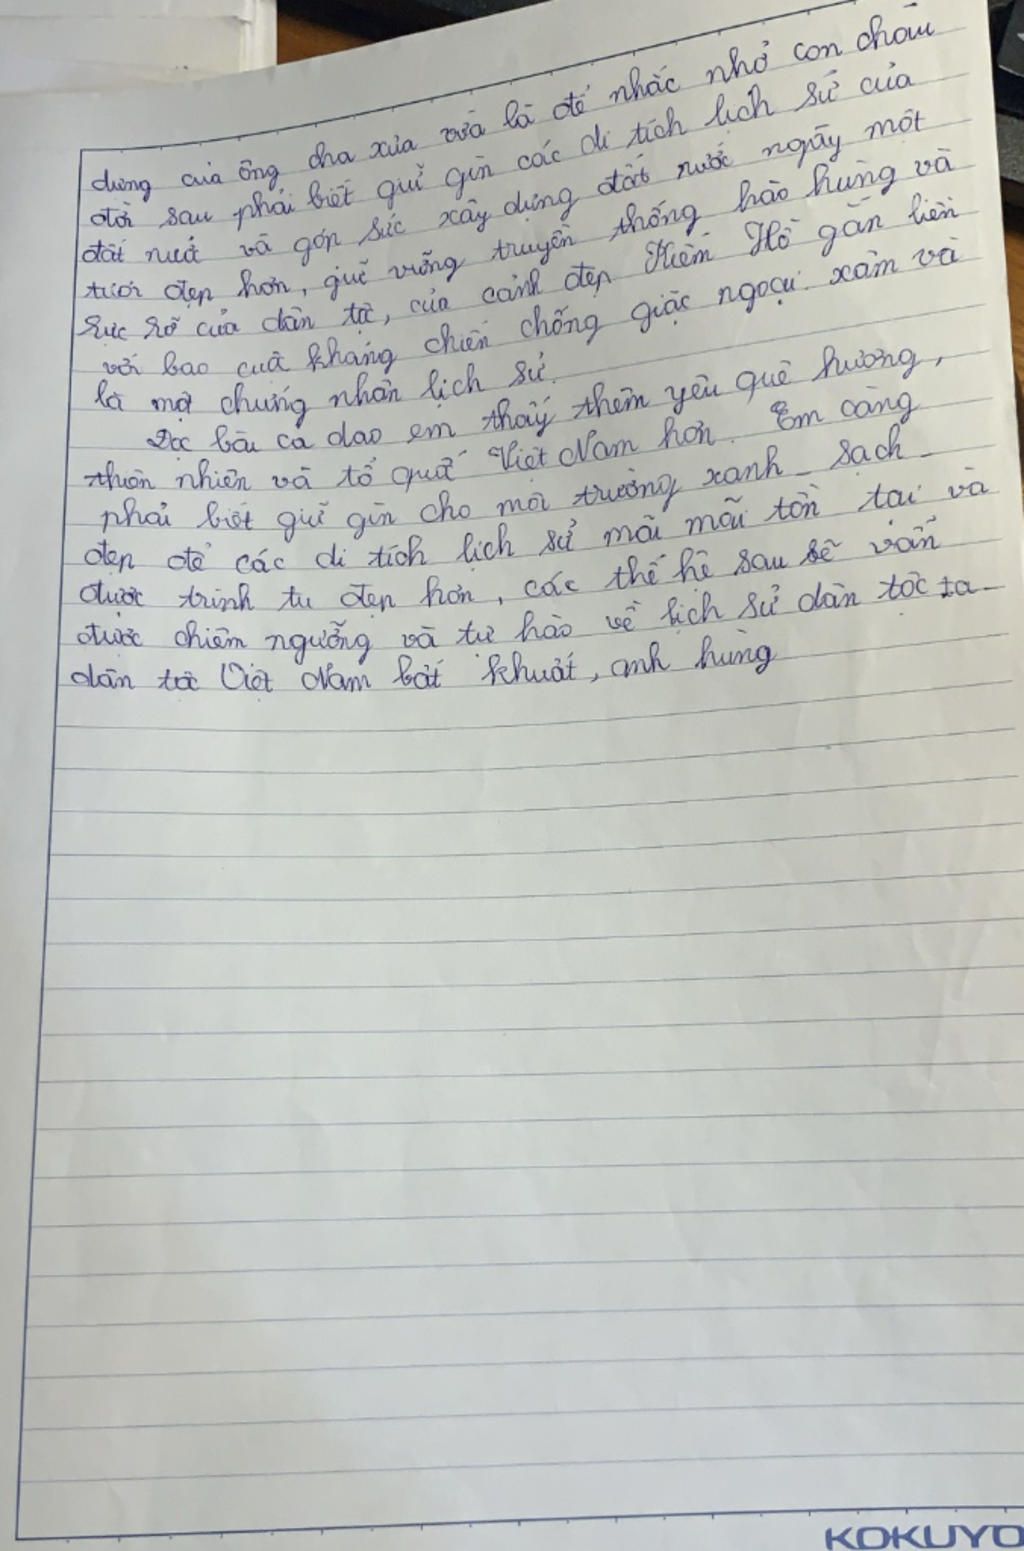 dựng của ông cha xưa vừa là để nhắc nhở con cháu
đời sau phải biết giữ gìn các di tích lịch sử của
đất nước và góp sức xây dựng đất nước ngày một
tươi đẹp hơn, giữ vững truyền thống hào hùng và
rực rỡ của dân tộc, của cảnh đẹp Kiếm Hồ gắn liền
với bao cuộc kháng chiến chống giặc ngoại xâm và
là một chứng nhân lịch sử.
Đọc bài ca dao em thấy thêm yêu quê hương,
thiên nhiên và tổ quốc Việt Nam hơn. Em càng
phải biết giữ gìn cho môi trường xanh - sạch -
đẹp để các di tích lịch sử mãi mãi tồn tại và
được trinh tu đẹp hơn, các thế hệ sau sẽ vẫn
được chiêm ngưỡng và tự hào về lịch sử dân tộc ta -
dân tộc Việt Nam bất khuất, anh hùng
KOKUYO